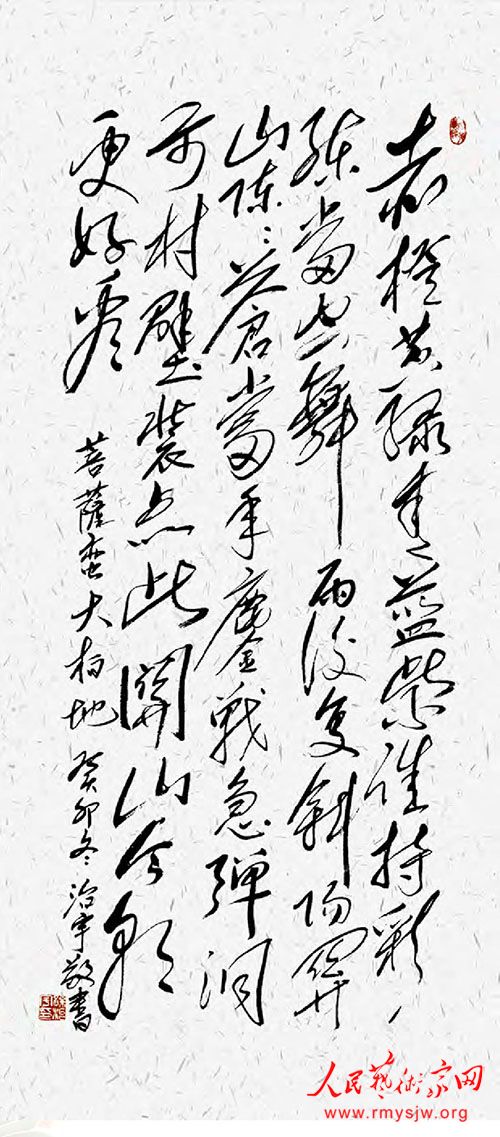 赤橙黄绿青蓝紫谁持彩
練當空舞雨後复斜阳関
山陣々蒼當年鏖戰急弹洞
前村壁装点此関山今朝
更好看
菩薩蛮大柏地 癸卯冬 治宇敬書
人民藝術家网
www.rmysjw.org